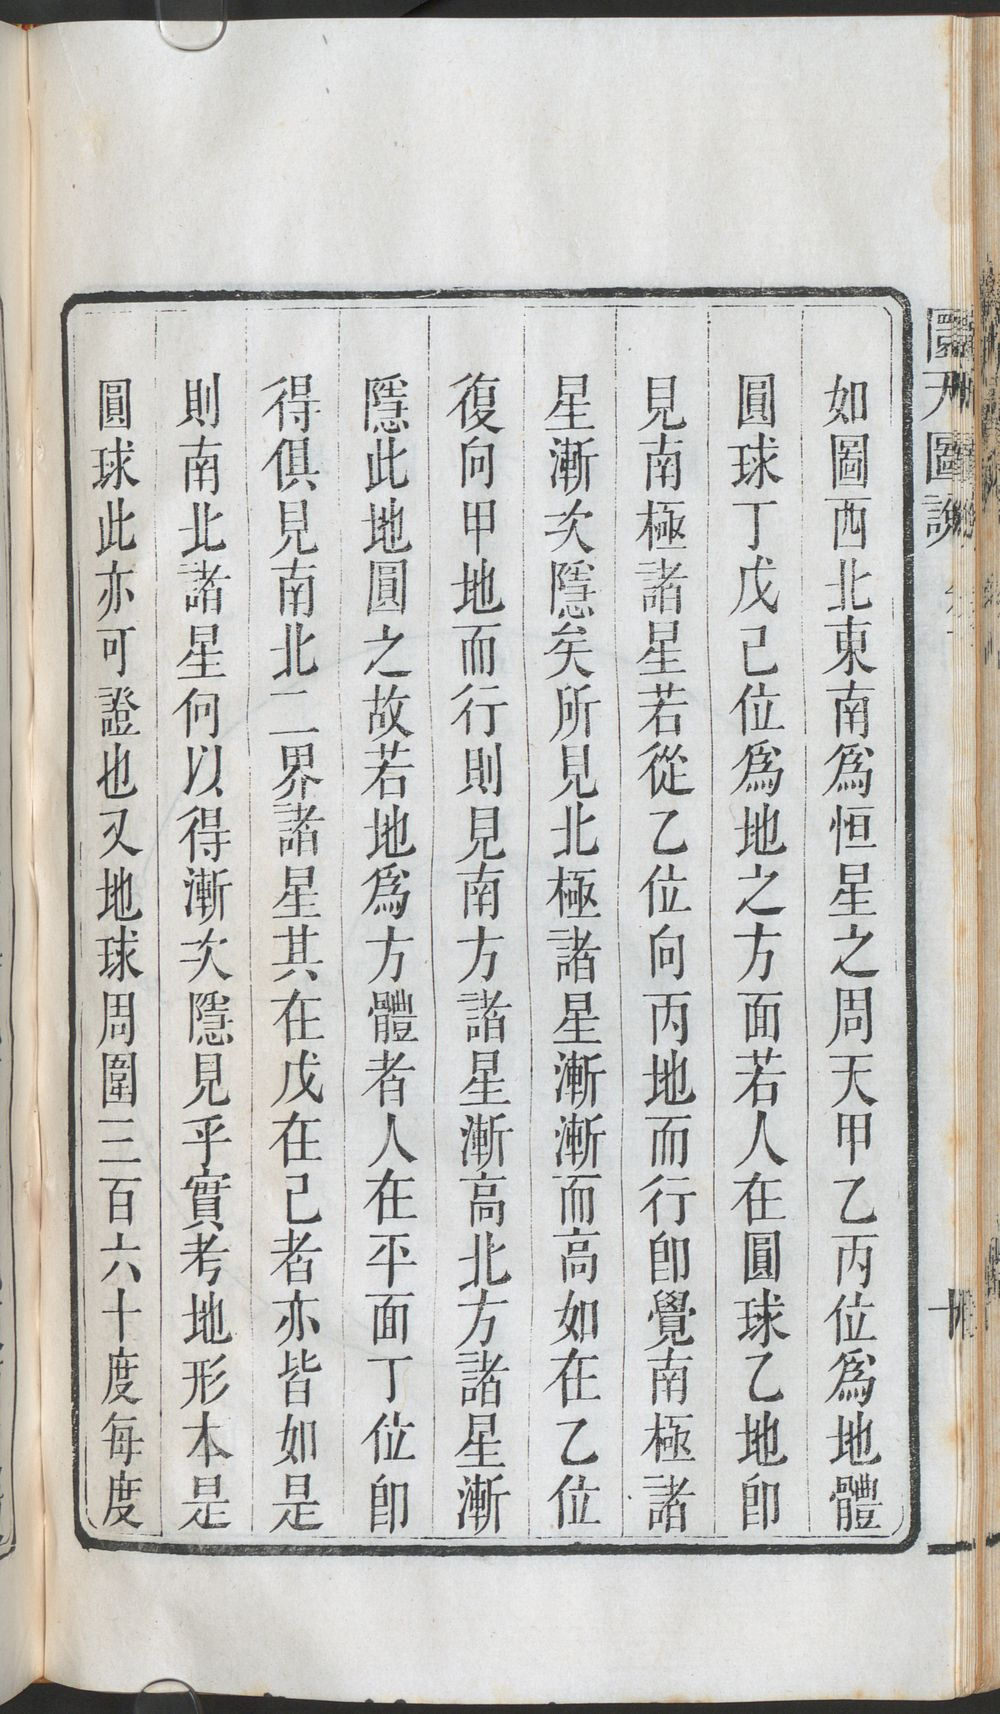 如圖西北東南爲恒星之周天甲乙丙位爲地體
圓球丁戊己位爲地之方面若人在圓球乙地卽
見南極諸星若從乙位向丙地而行卽覺南極諸
星漸次隱矣所見北極諸星漸漸而高如在乙位
復向甲地而行則見南方諸星漸高北方諸星漸
隱此地圓之故若地爲方體者人在平面丁位卽
得俱見南北二界諸星其在戊在己者亦皆如是
則南北諸星何以得漸次隱見乎實考地形本是
圓球此亦可證也又地球周圍三百六十度每度
圖說